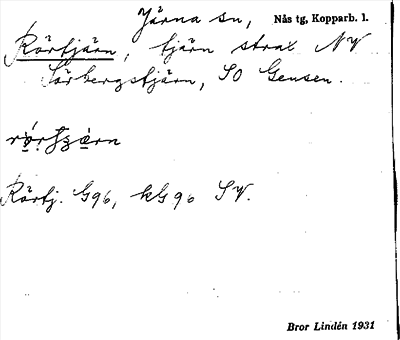 Järna sn, Nås tg, Kopparb. l.
Rörtjärn, tjärn strax NV
Sörbergstjärn, SO Gensen.
Rörtj. G96, kG90 SV.
Bror Lindén 1931